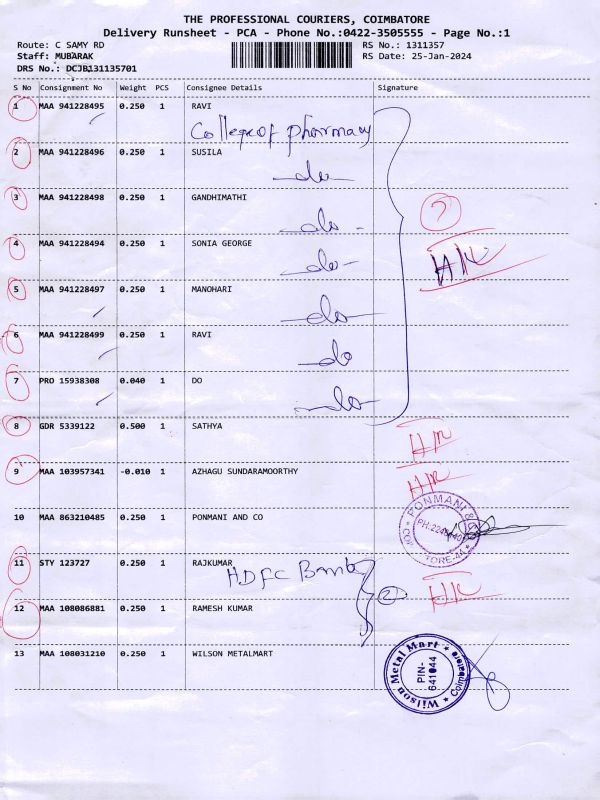 THE PROFESSIONAL COURIERS, COIMBATORE
Delivery Runsheet - PCA - Phone No.:0422-3505555 - Page No.:1
Route: C SAMY RD
RS No.: 1311357
Staff: MUBARAK
RS Date: 25-Jan-2024
DRS No.: DCJB131135701
S No Consignment No Weight PCS Consignee Details Signature
1 MAA 941228495 0.250 1 RAVI
College of pharmacy
2 MAA 941228496 0.250 1 SUSILA
do
3 MAA 941228498 0.250 1 GANDHIMATHI
do
7
4 MAA 941228494 0.250 1 SONIA GEORGE
do
5 MAA 941228497 0.250 1 MANOHARI
do
6 MAA 941228499 0.250 1 RAVI
do
7 PRO 15938308 0.040 1 DO
do
8 GDR 5339122 0.500 1 SATHYA
9 MAA 103957341 -0.010 1 AZHAGU SUNDARAMOORTHY
10 MAA 863210485 0.250 1 PONMANI AND CO
PONMANI &
11 STY 123727 0.250 1 RAJKUMAR
HDFC Bank
2
12 MAA 108086881 0.250 1 RAMESH KUMAR
13 MAA 108031210 0.250 1 WILSON METALMART
Wilson Metal Mart
PIN-
641044